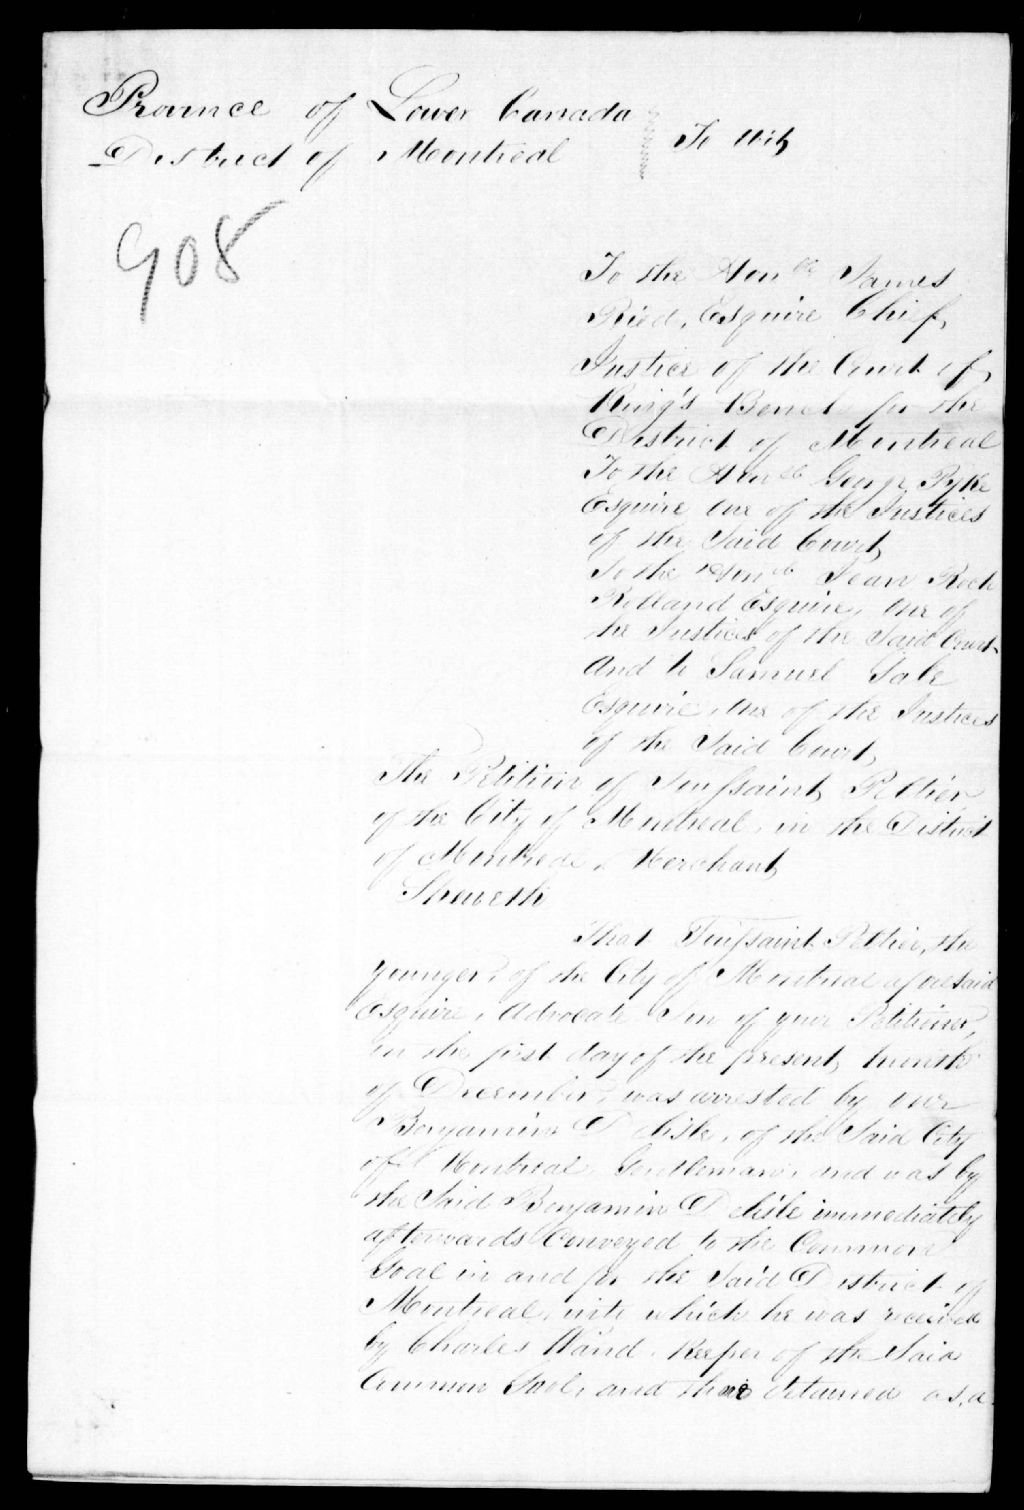 Province of Lower Canada
District of Montreal
To Wit
908
To the Honble James
Ried, Esquire Chief
Justice of the Court of
King's Bench for the
District of Montreal
To the Honble George Pyke
Esquire one of the Justices
of the Said Court,
To the Honble Jean Roch
Rolland Esquire, one of
the Justices of the Said Court
And to Samuel Gale
Esquire, one of the Justices
of the Said Court,
The Petition of Toussaint Peltier
of the City of Montreal, in the District
of Montreal, Merchant,
Sheweth
That Toussaint Peltier, the
younger, of the City of Montreal aforesaid
Esquire, Advocate Son of your Petitioner,
on the first day of the present month
of December, was arrested by one
Benjamin Delisle, of the Said City
of Montreal, Gentleman, and was by
the Said Benjamin Delisle immediately
afterwards Conveyed to the Common
Goal in and for the Said District of
Montreal, into which he was received
by Charles Wand, Keeper of the Said
Common Goal, and there detained as, a